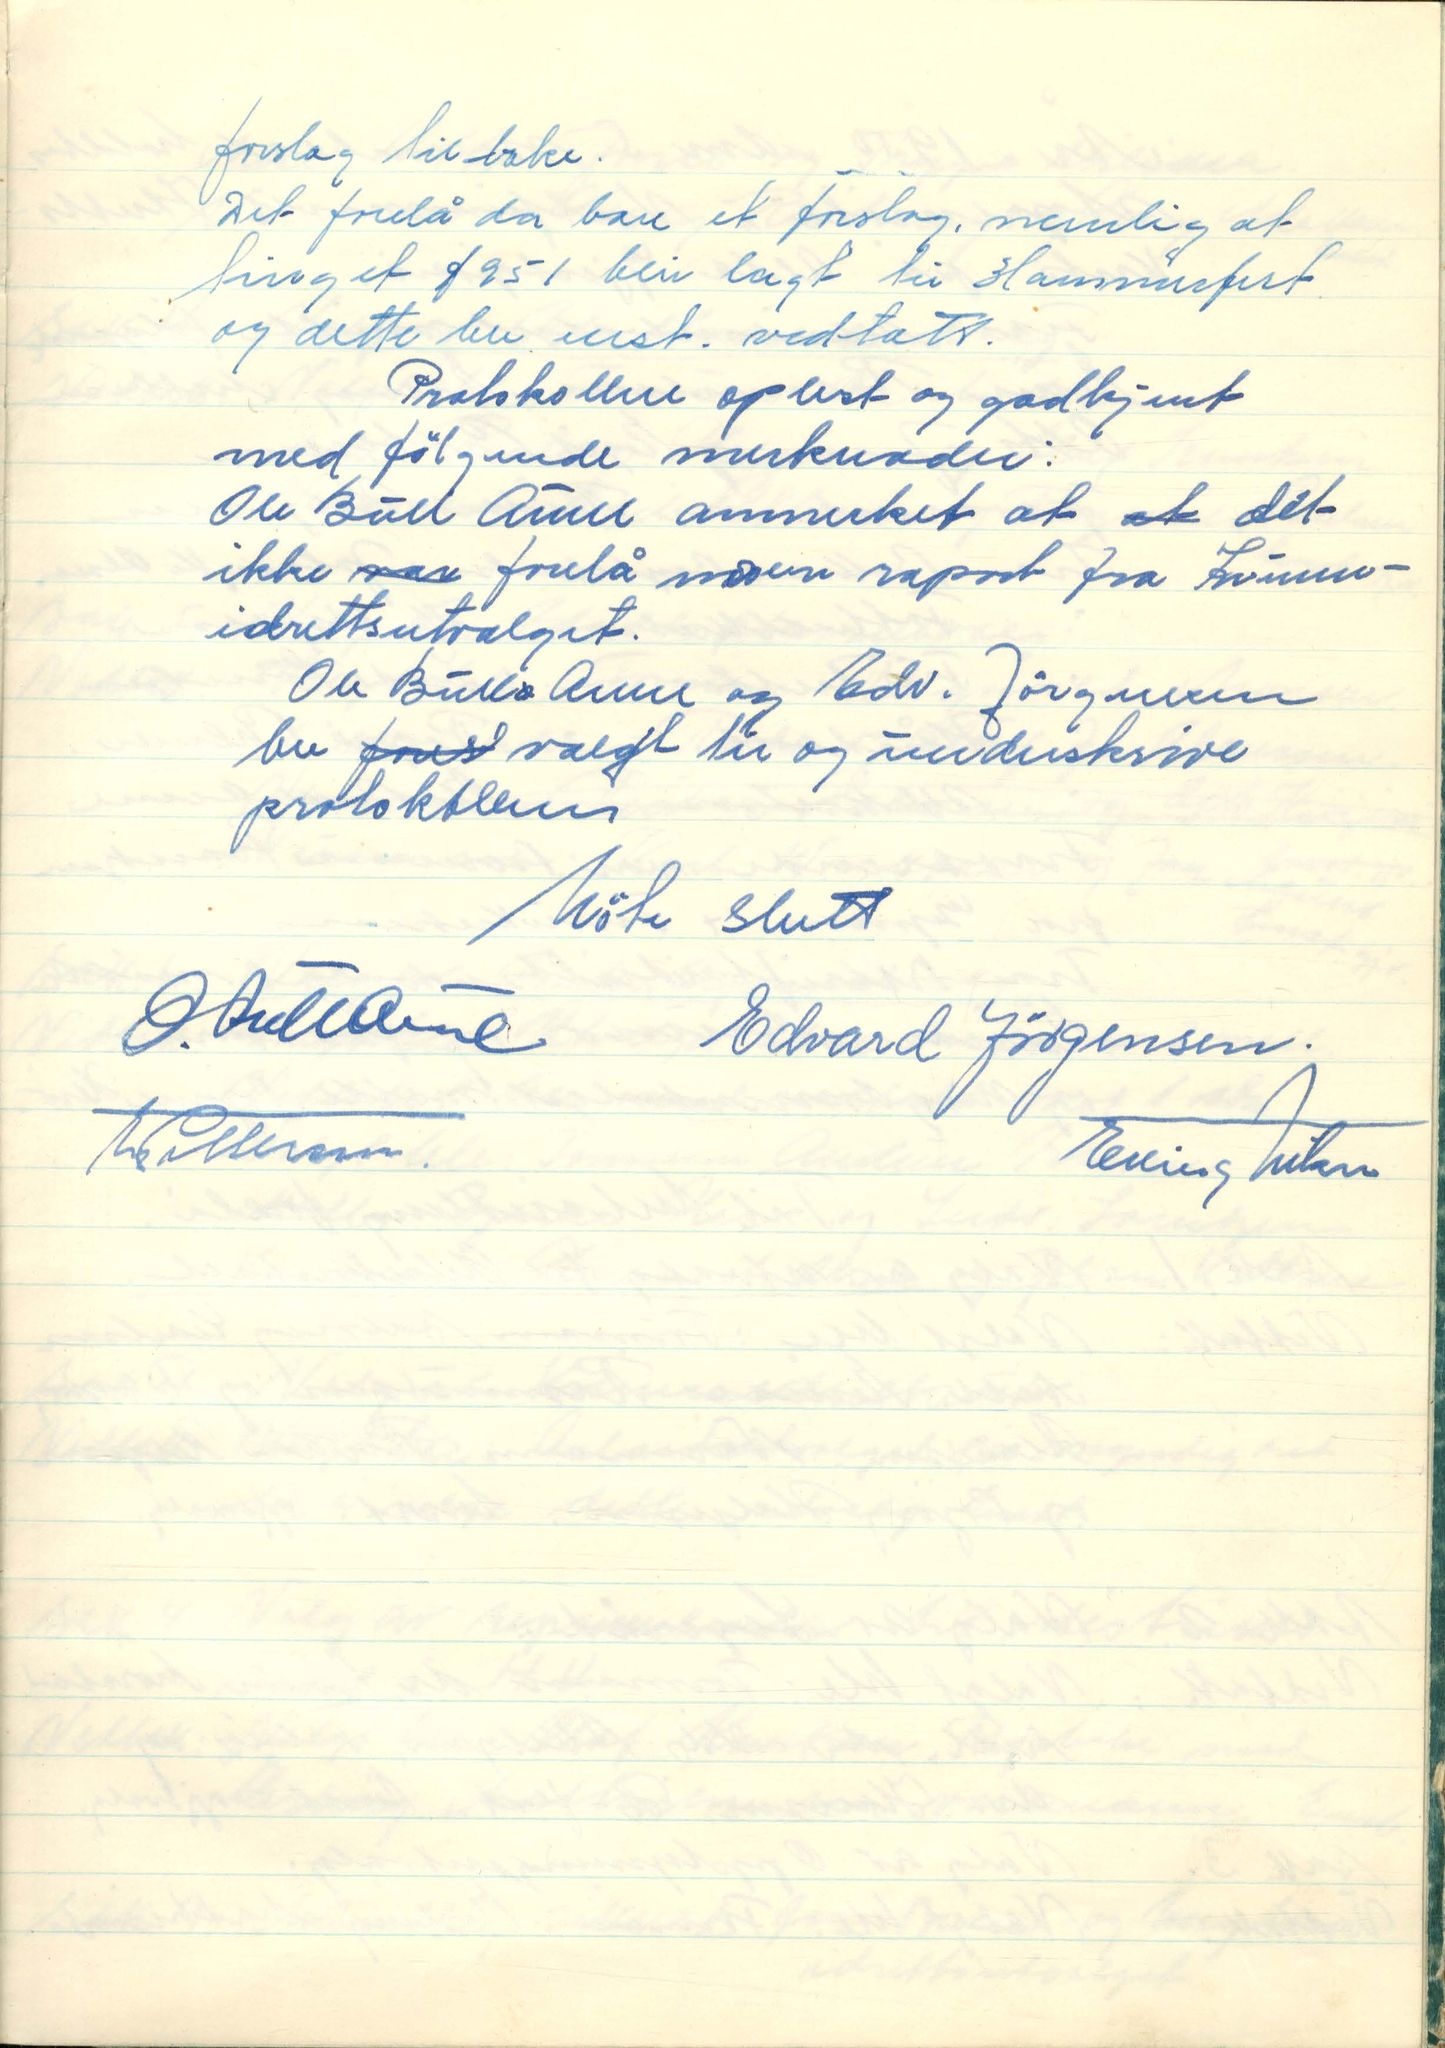 forslag tilbake.
Det forelå da bare et forslag, nemlig at
tinget 1951 blir lagt til Hammerfest
og dette ble enst. vedtatt.
Protokollen oplest og godkjent
med følgende merknader:
Ole Bull Aune anmerket at at det
ikke var forelå noen raport fra kvinne-
idrettsutvalget.
Ole Bull Aune og Edv. Jörgensen
ble valgt til og underskrive
protokollen
Möte slutt
O. Bull Aune Edvard Jörgensen.
Pettersen. Erling